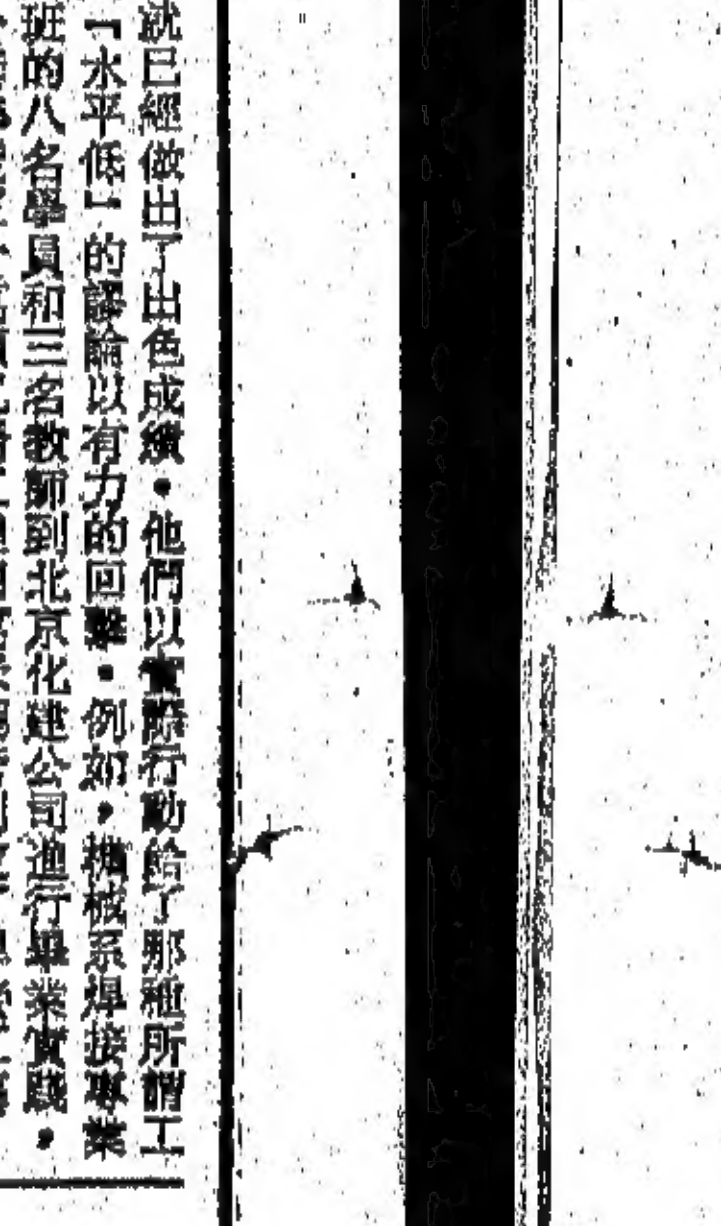 就已經做出了出色成績。他們以實際行動給了那種所謂工
「水平低」的謬論以有力的回擊。例如,機械系焊接專業
班的八名學員和三名教師到北京化建公司進行畢業實踐,